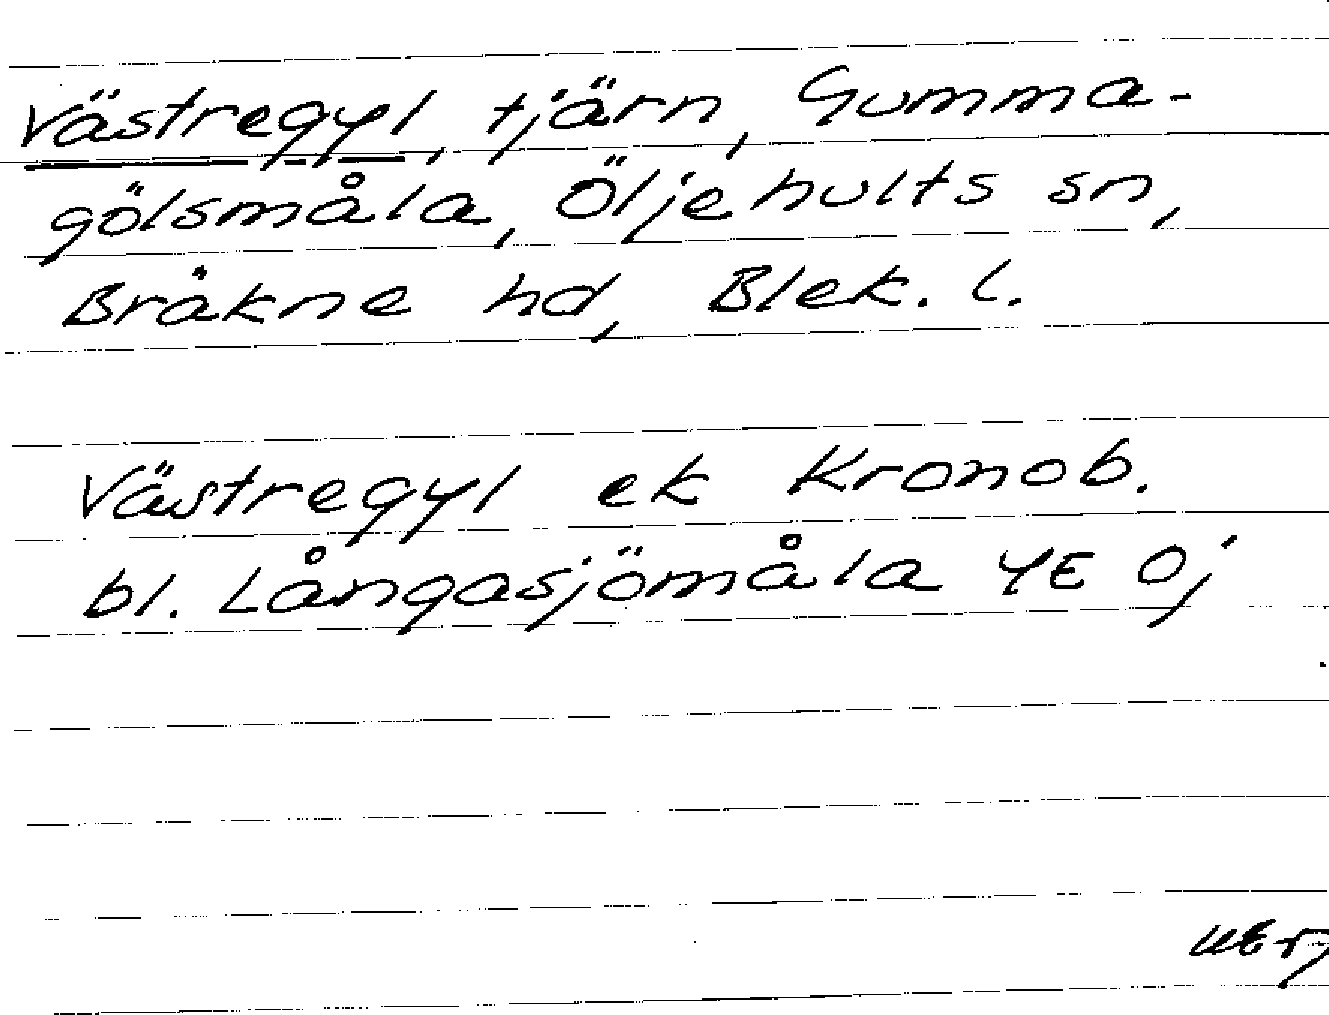 Västregyl, tjärn, Gumma-
gölsmåla, Öljehults sn,
Bräkne hd, Blek. l.
Västregyl ek Kronob.
bl. Långasjömåla 4E Oj